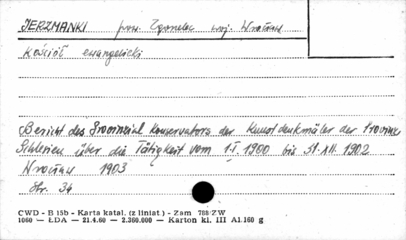 JERZMANKI pow. Zgorzelec woj. Wrocław
Kościół ewangelicki
Bericht des Provinzial Konservators der Kunstdenkmäler der Provinz
Schlesien über die Tätigkeit vom 1.I. 1900 bis 31.XII. 1902
Wrocław 1903
Str. 34
CWD - B 15b - Karta katal. (z liniat.) - Zam 788/ZW
1060 — ŁDA — 21.4.60 - 2.360.000 — Karton kl. III A1.160 g